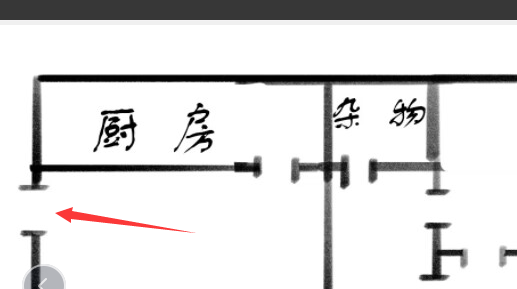 厨房
杂物